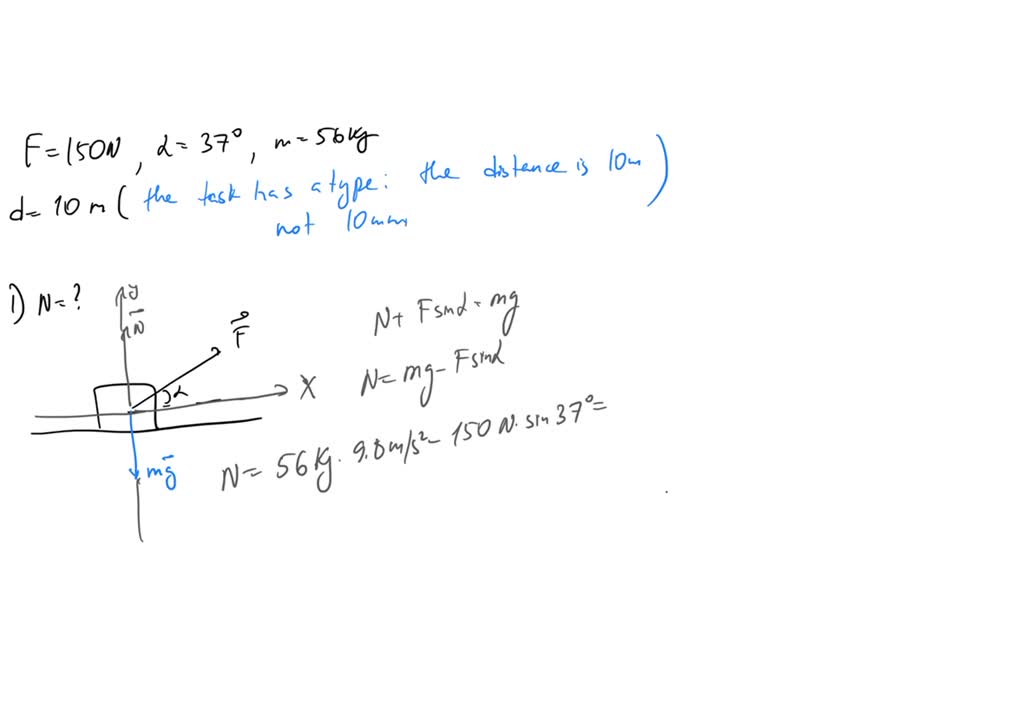 F=150N, α=37°, m=56kg
d=10m (the task has a type: the distance is 10m
not 10mm)
1) N=?
y
N⃗
F⃗
α
X
mg⃗
N+ Fsinα=mg
N=mg-Fsinα
N= 56kg·9.8m/s²-150N·sin37°=